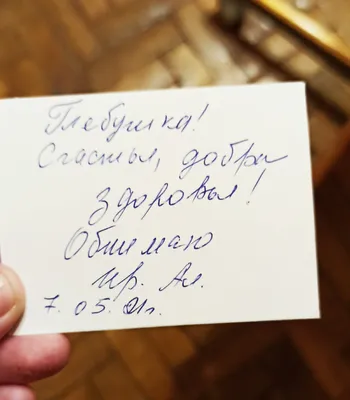 Глебушка!
Счастья, добра
здоровья!
Обнимаю
Ир. Ал.
7. 05. 21г.